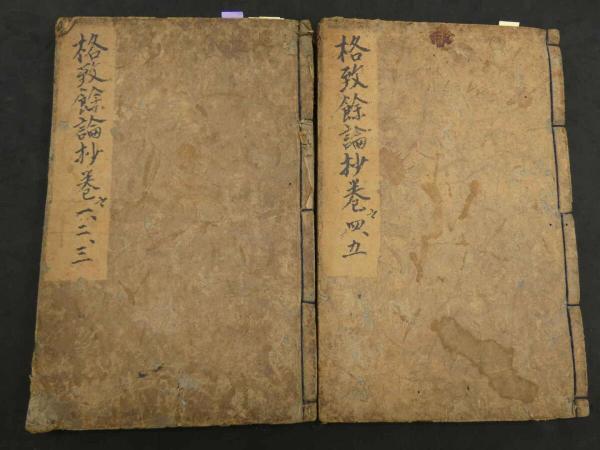 格致餘論抄巻之一、二、三
格致餘論抄巻之四、五